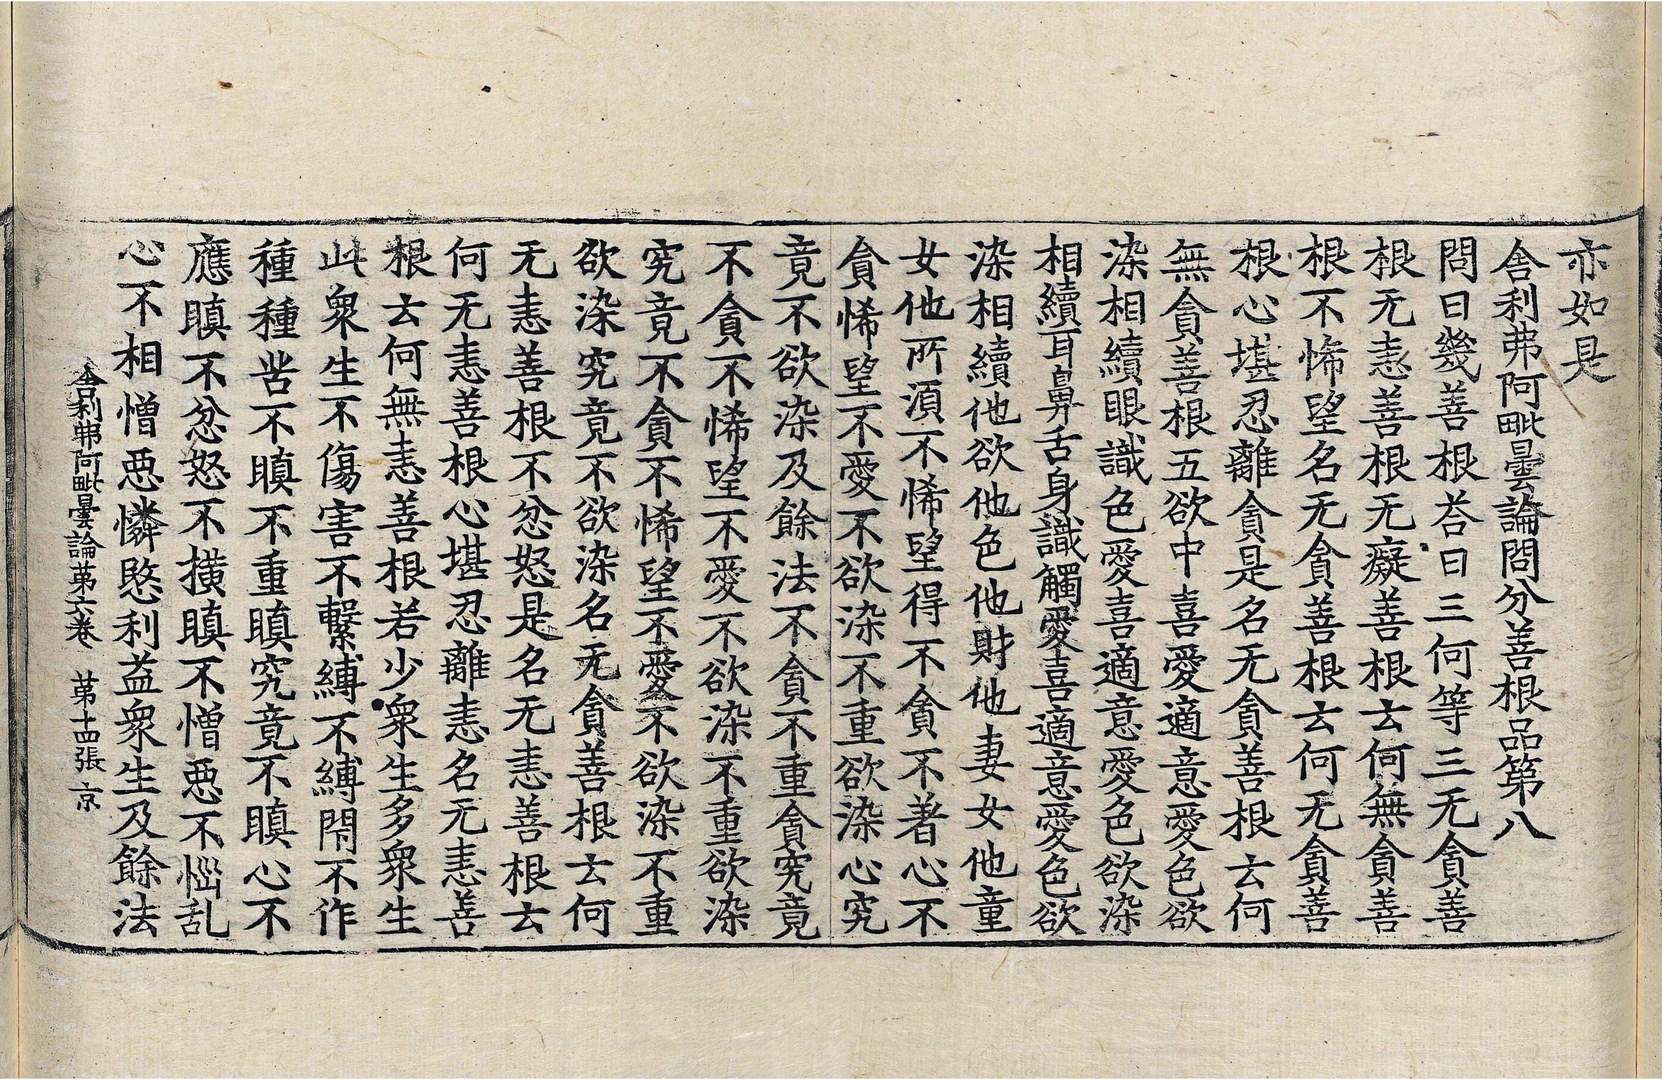 亦如是
舍利弗阿毗曇論問分善根品第八
問曰幾善根荅曰三何等三无貪善
根无恚善根无癡善根云何無貪善
根不悕望名无貪善根云何无貪善
根心堪忍離貪是名无貪善根云何
無貪善根五欲中喜愛適意愛色欲
染相續眼識色愛喜適意愛色欲染
相續耳鼻舌身識觸愛喜適意愛色欲
染相續他欲他色他財他妻女他童
女他所須不悕望得不貪不著心不
貪悕望不愛不欲染不重欲染心究
竟不欲染及餘法不貪不重貪究竟
不貪不悕望不愛不欲染不重欲染
究竟不貪不悕望不愛不欲染不重
欲染究竟不欲染名无貪善根云何
无恚善根不忿怒是名无恚善根云
何无恚善根心堪忍離恚名无恚善
根云何無恚善根若少衆生多衆生
此衆生不傷害不繫縛不縛閇不作
種種苦不瞋不重瞋究竟不瞋心不
應瞋不忿怒不擴瞋不憎惡不惱乱
心不相憎惡憐愍利益衆生及餘法
舍利弗阿毗曇論苐六卷　苐十四張　京